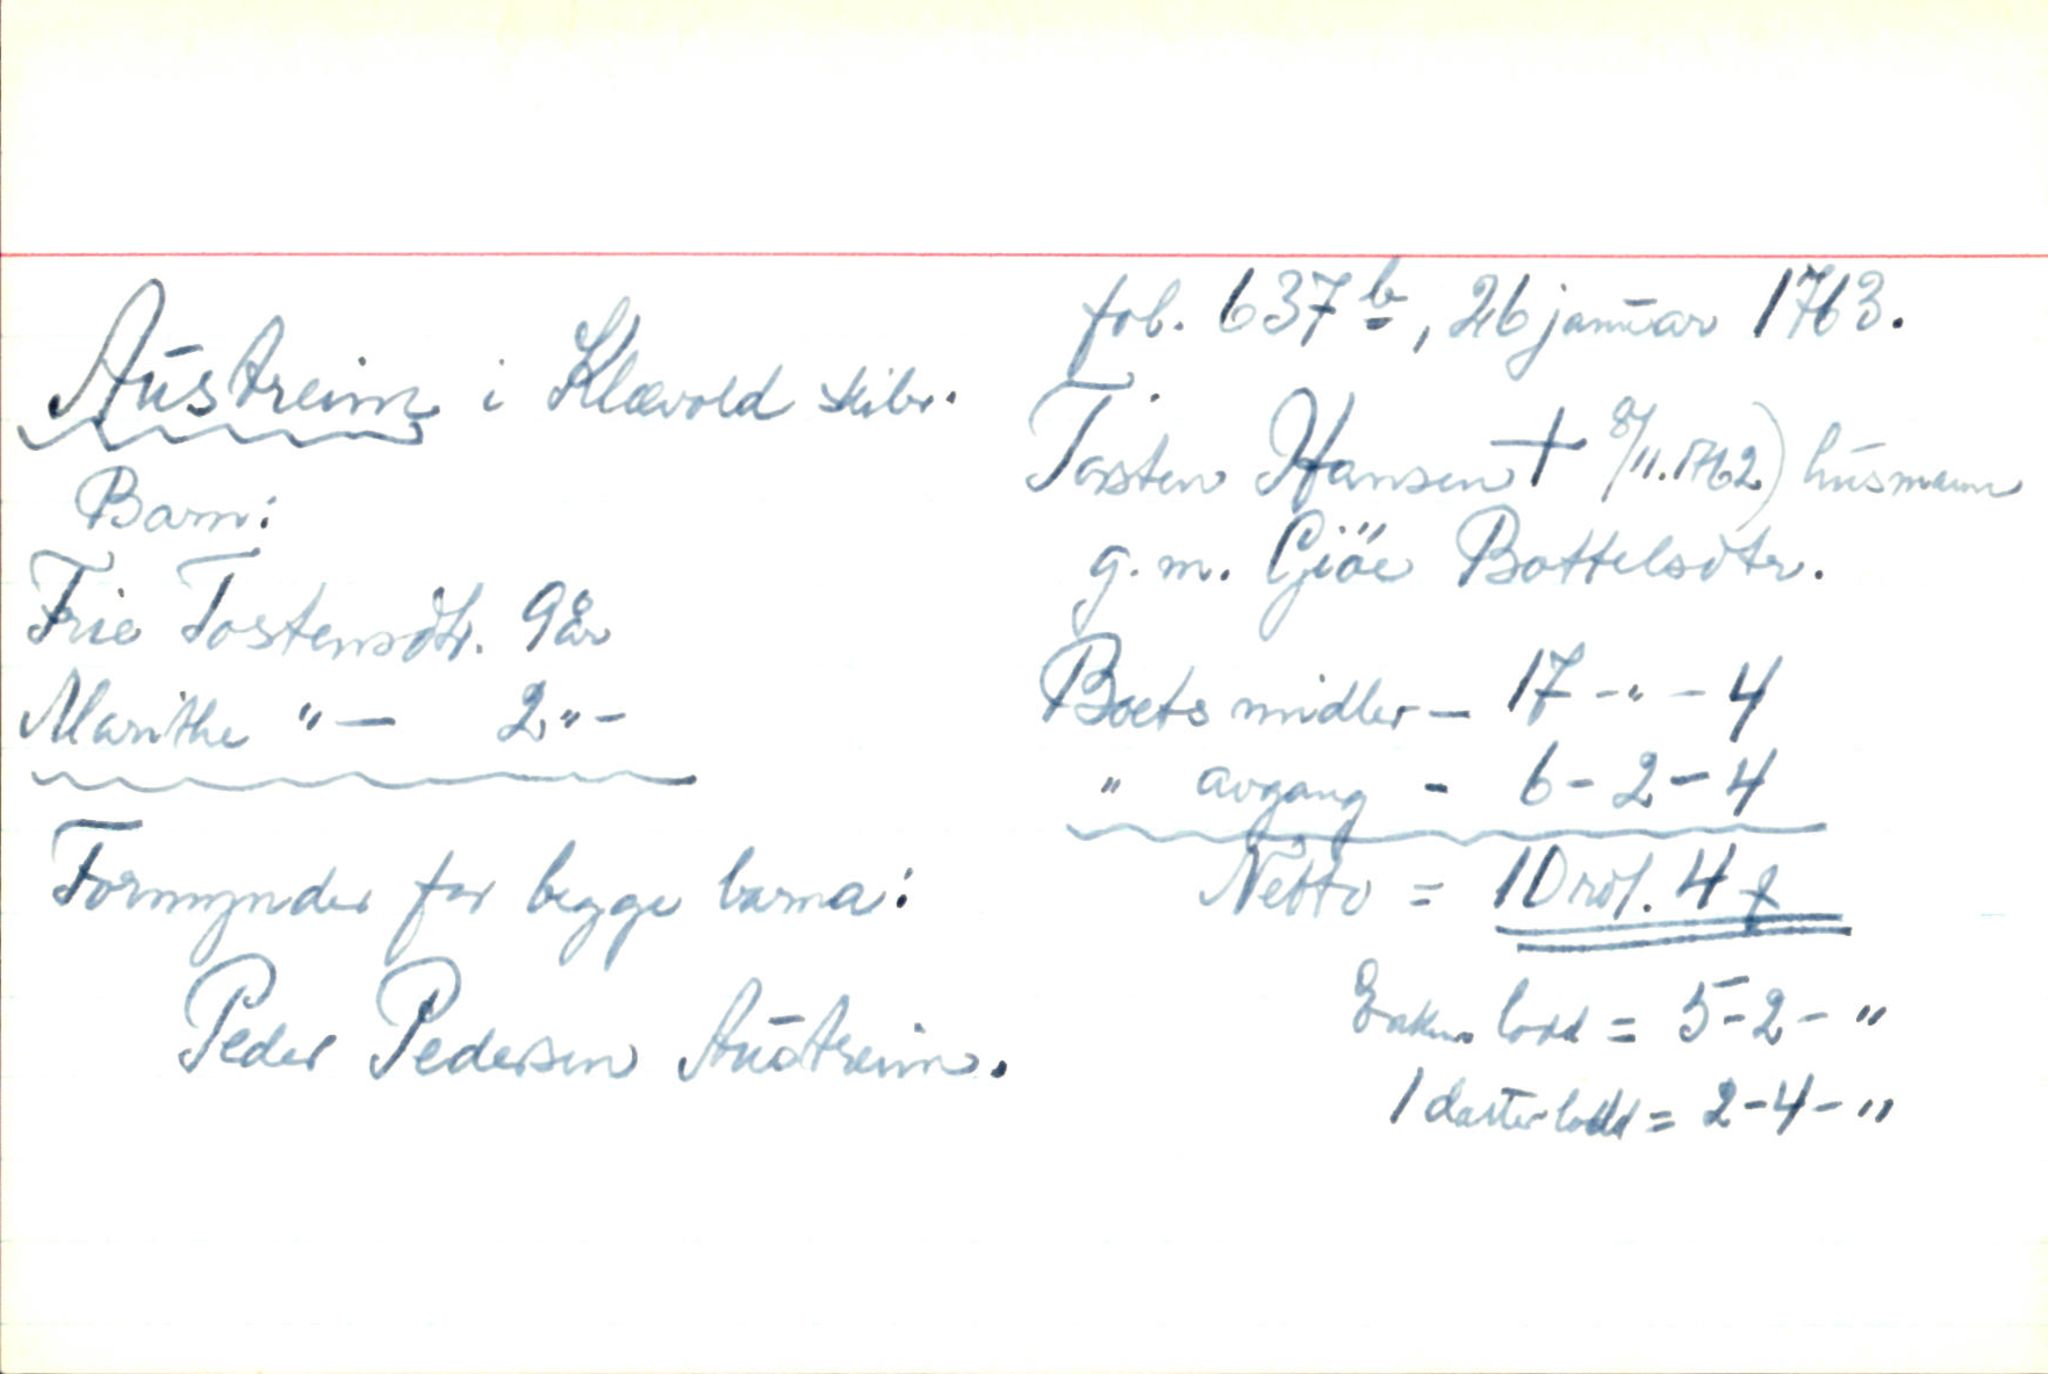 Austreim i Klævold skibr.
Barn:
Frie Tostensdtr. 9 år
Marithe " — 2 " -
Formynder for begge barna:
Peder Pedersen Austreim.
fol. 637 b, 26 januar 1763.
Tosten Hansen † 8/11.1762) husmann
g.m. Gjöe Bottelsdtr.
Boets midler - 17 - " - 4
" avgang - 6 - 2 - 4
Netto = 10 rdl. 4
Enkens lodd = 5 - 2 - "
1 datterlodd = 2 - 4 - "